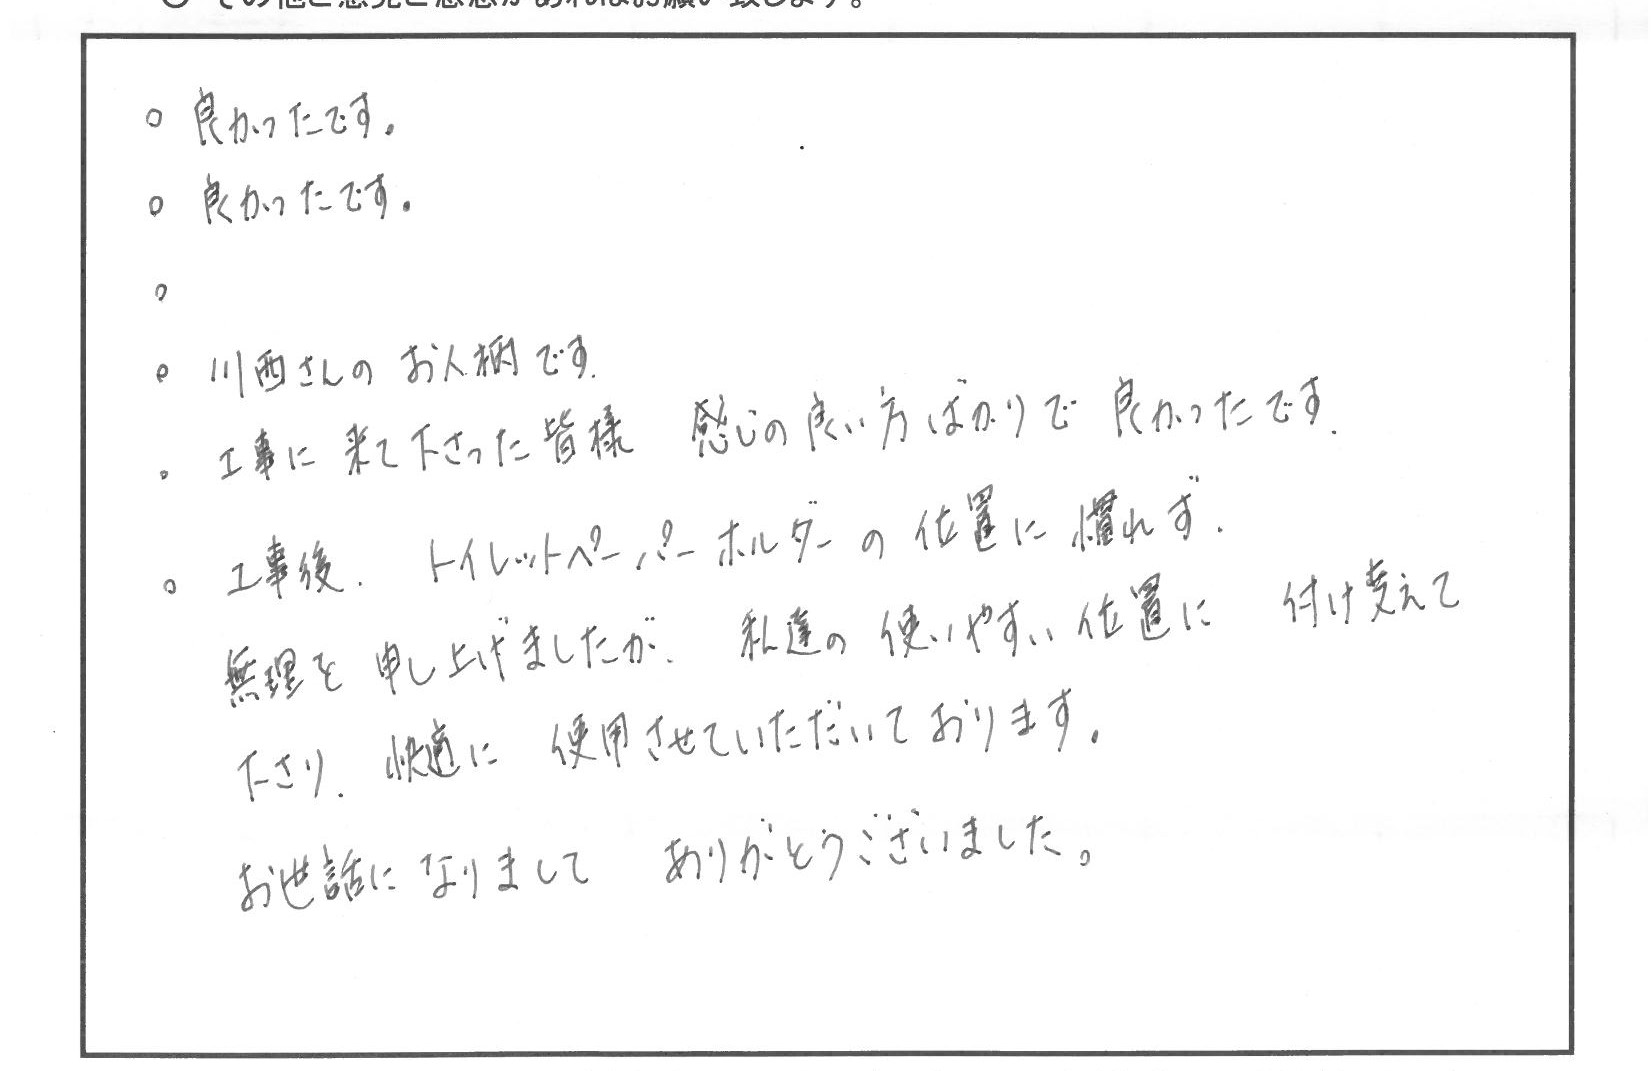 ○ その他ご意見ご感想があればお願い致します。
○ 良かったです。
○ 良かったです。
○
○ 川西さんの お人柄です.
。 工事に 来て下さった皆様 感じの良い方ばかりで 良かったです.
○ 工事後. トイレットペーパーホルダーの 位置に 慣れず.
無理を 申し上げましたが. 私達の 使いやすい 位置に 付け変えて
下さり. 快適に 使用させていただいて おります。
お世話に なりまして ありがとうございました。